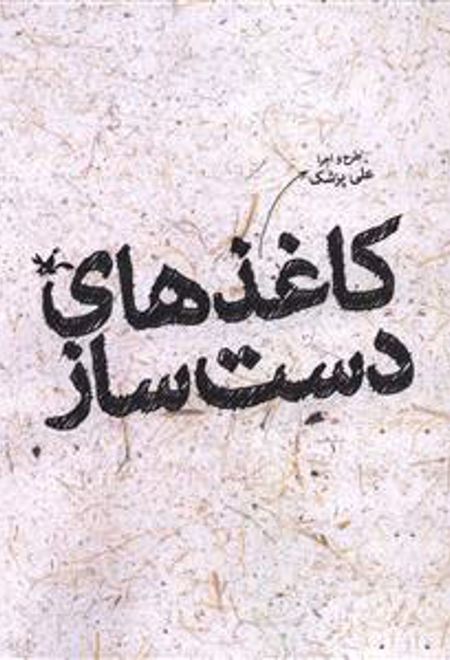 طرح و اجرا
علی پزشک
کاغذهای
دست‌ساز